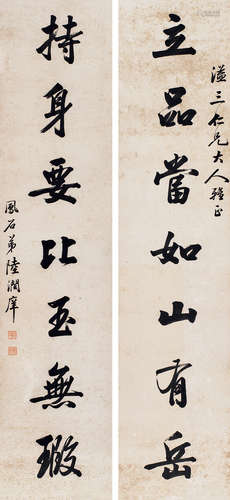 溢三仁兄大人雅正
立品當如山有岳
持身要比玉無瑕
鳳石弟陸潤庠